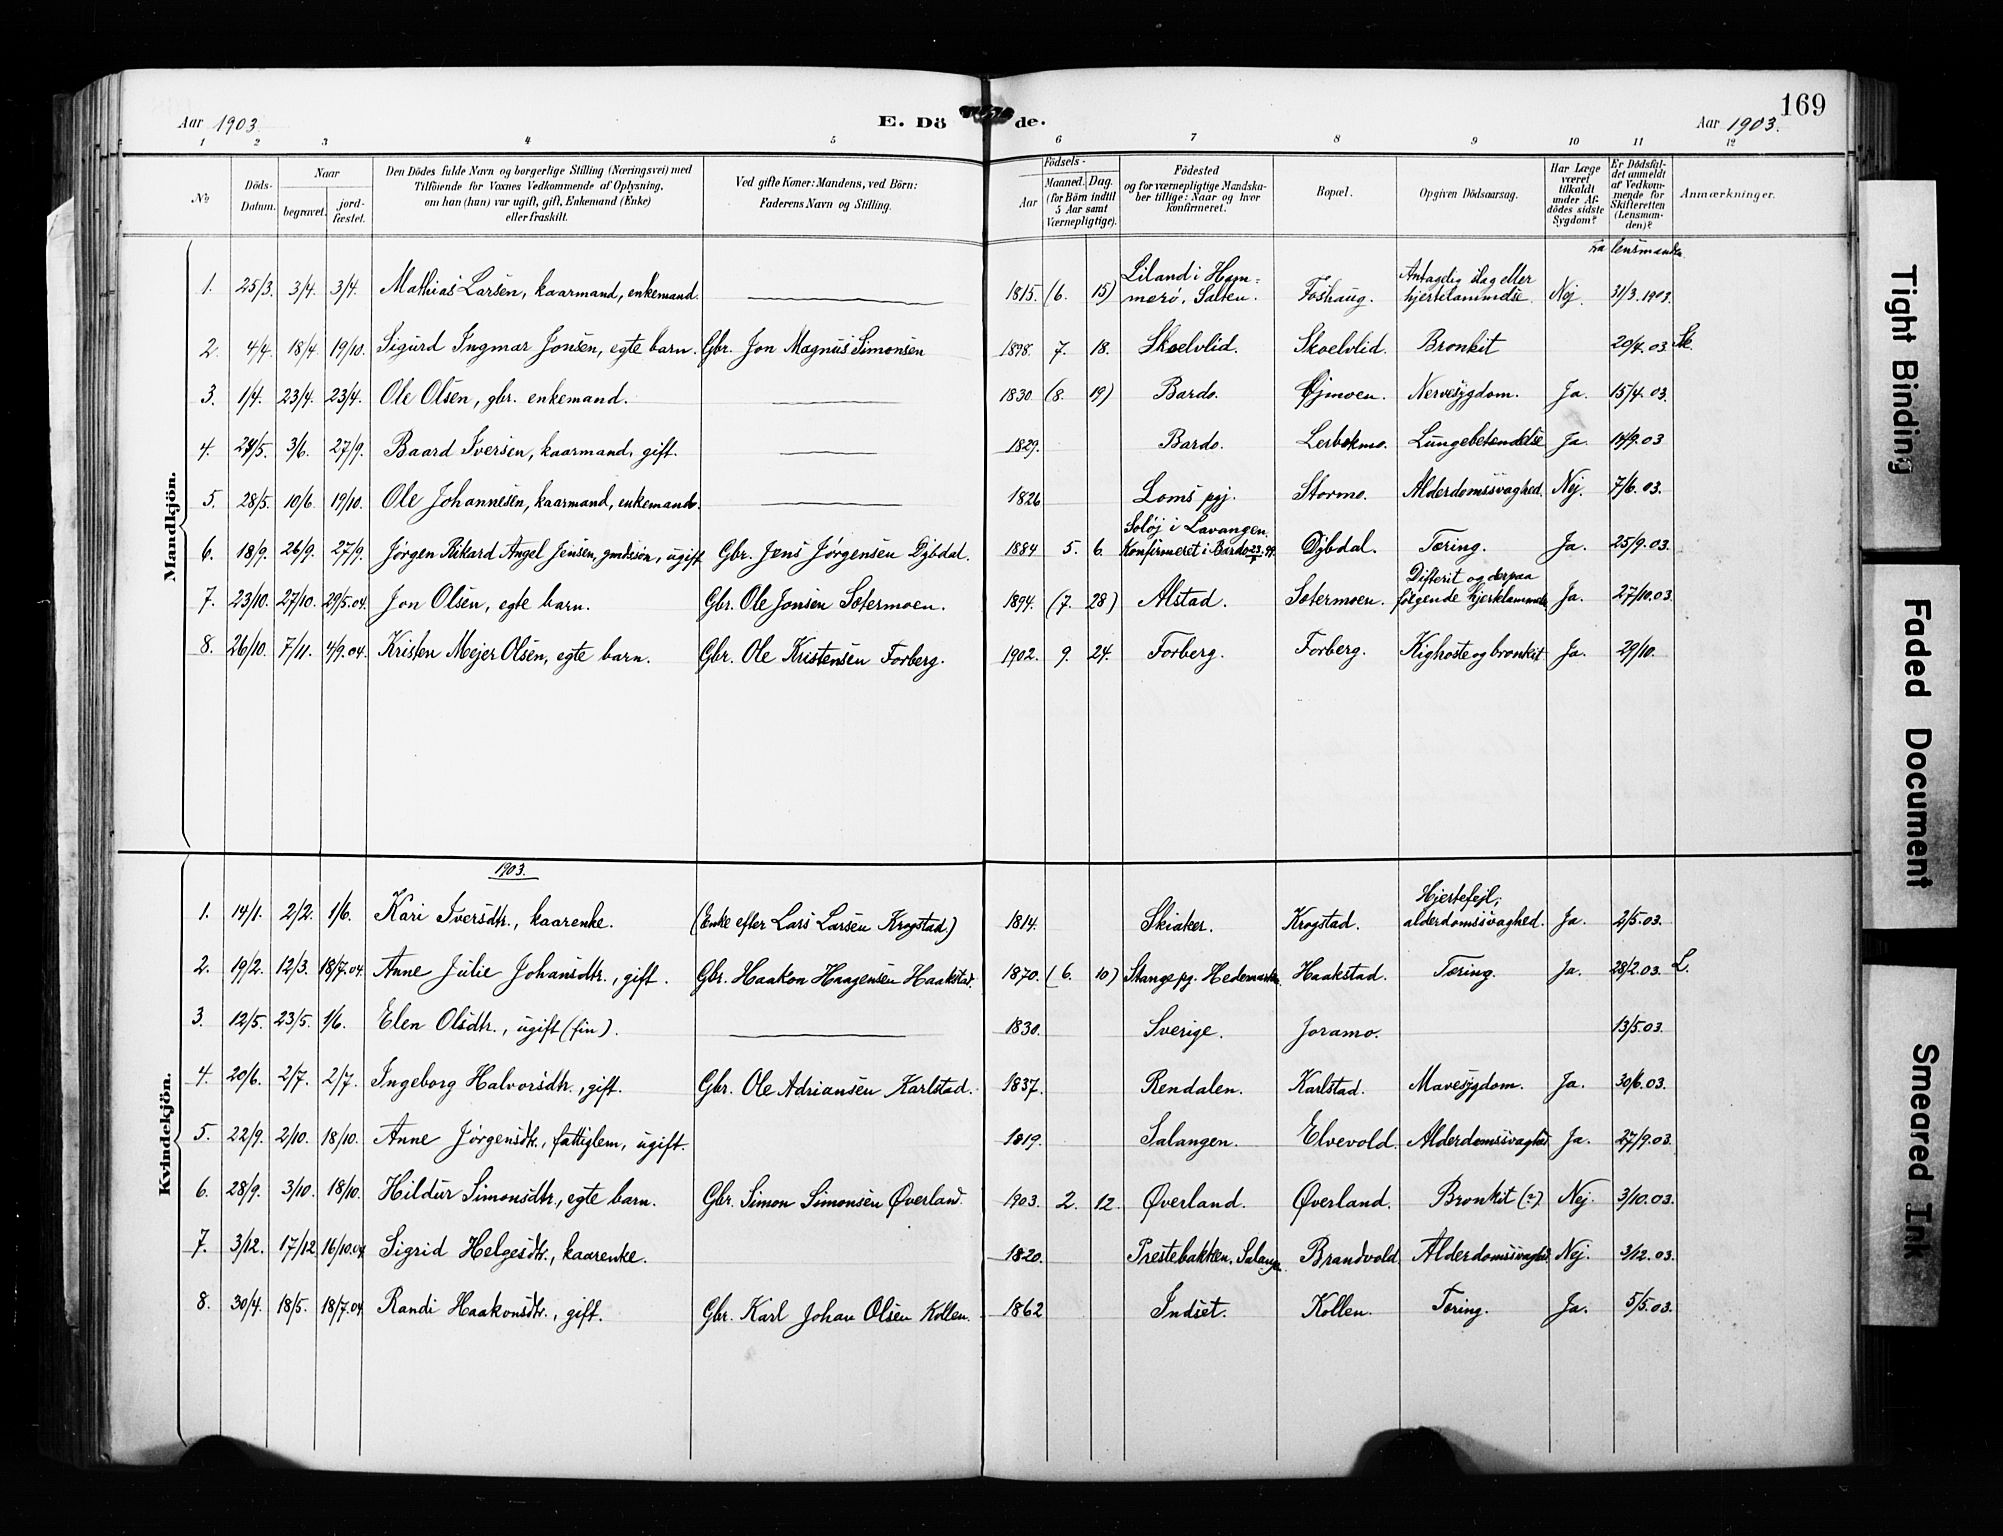 169
Aar 1903. E. Döde. Aar 1903.
1 2 3 4 5 6 7 8 9 10 11 12
No Döds-Datum. Naar begravet. jord-fæstet. Den Dödes fulde Navn og borgerlige Stilling (Næringsvei) med Tilföiende for Voxnes Vedkommende af Oplysning, om han (hun) var ugift, gift, Enkemand (Enke) eller fraskilt. Ved gifte Koner: Mandens, ved Börn: Faderens Navn og Stilling. Födsels- Aar Maaned. Dag. (for Börn indtil 5 Aar samt Værnepligtige). Födested og for værnepligtige Mandskaber tillige: Naar og hvor konfirmeret. Bopæl. Opgiven Dödsaarsag. Har Læge været tilkaldt under Afdödes sidste Sygdom? Er Dödsfaldet anmeldt af Vedkommende for Skifteretten (Lensmanden)? Anmærkninger.
Mandkjön.
1. 25/3. 3/4. 3/4. Mathias Larsen, kaarmand, enkemand. 1815. (6. 15) Liland i Hammerø, Salten. Foshaug. Antagelig slag eller hjertelammelse. Nej. Fra lensmanden 31/3.1903.
2. 4/4. 18/4. 19/10. Sigurd Ingmar Jonsen, egte barn. Gbr. Jon Magnus Simonsen 1898. 7. 18. Skoelvlid. Skoelvlid. Bronkit 20/4.03.
3. 1/4. 23/4. 23/4. Ole Olsen, gbr. enkemand. 1830. (8. 19) Bardo. Øjmoen. Nervesygdom. Ja. 15/4.03.
4. 24/5. 3/6. 27/9. Baard Iversen, kaarmand, gift. 1829. Bardo. Lerbekmo. Lungebetendelse Ja. 14/9.03
5. 28/5. 10/6. 19/10. Ole Johannesen, kaarmand, enkemand. 1826 Loms pgj. Stormo. Alderdomssvaghed. Nej. 7/6.03.
6. 18/9. 26/9. 27/9. Jørgen Rikard Angel Jensen, gmdssøn, ugift Gbr. Jens Jørgensen Dybdal. 1884 5. 6. Soløj i Lavangen. Konfirmeret i Bardo Dybdal. Tæring. Ja. 25/9.03.
7. 23/10. 27/10. 29/5.04. Jon Olsen, egte barn. Gbr. Ole Jonsen Sætermoen. 1894. (7. 28) Alstad. Sætermoen. Difterit og derpaa følgende hjertelammelse Ja. 27/10.03.
8. 26/10. 7/11. 4/9.04. Kristen Mejer Olsen, egte barn. Gbr. Ole Kristensen Forberg. 1902. 9. 24. Forberg. Forberg. Kighoste og bronkit Ja. 29/10.
Kvindekjön.
1903.
1. 14/1. 2/2. 1/6. Kari Iversdtr., kaarenke. (Enke efter Lars Larsen Krogstad.) 1814. Skiaker. Krogstad. Hjertefejl, alderdomssvaghed. Ja. 2/5.03.
2. 19/2. 12/3. 18/7.04. Anne Julie Johansdtr., gift. Gbr. Haakon Haagensen Haakstad. 1870. (6. 10) Stange pg. Hedemarken. Haakstad. Tæring. Ja. 28/2.03. L.
3. 12/5. 23/5. 1/6. Elen Olsdtr., ugift (fin). 1830. Sverige. Joramo. 13/5.03.
4. 20/6. 2/7. 2/7. Ingeborg Halvorsdtr., gift. Gbr. Ole Adriansen Karlstad. 1837. Rendalen. Karlstad. Mavesygdom. Ja. 30/6.03.
5. 22/9. 2/10. 18/10. Anne Jørgensdtr., fattiglem, ugift. 1819. Salangen. Elvevold. Alderdomssvaghed Ja. 27/9.03.
6. 28/9. 3/10. 18/10. Hildur Simonsdtr., egte barn. Gbr. Simon Simonsen Øverland. 1903. 2. 12. Øverland. Øverland. Bronkit (?) Nej. 3/10.03.
7. 3/12. 17/12 16/10.04. Sigrid Helgesdtr., kaarenke. 1820. Prestebakken, Salangen. Brandvold. Alderdomssvaghed. Nej. 3/12.03.
8. 30/4. 18/5. 18/7.04. Randi Haakonsdtr., gift. Gbr. Karl Johan Olsen Kollen. 1862 Indset. Kollen. Tæring. Ja. 5/5.03.
Tight Binding
Faded Document
Smeared Ink